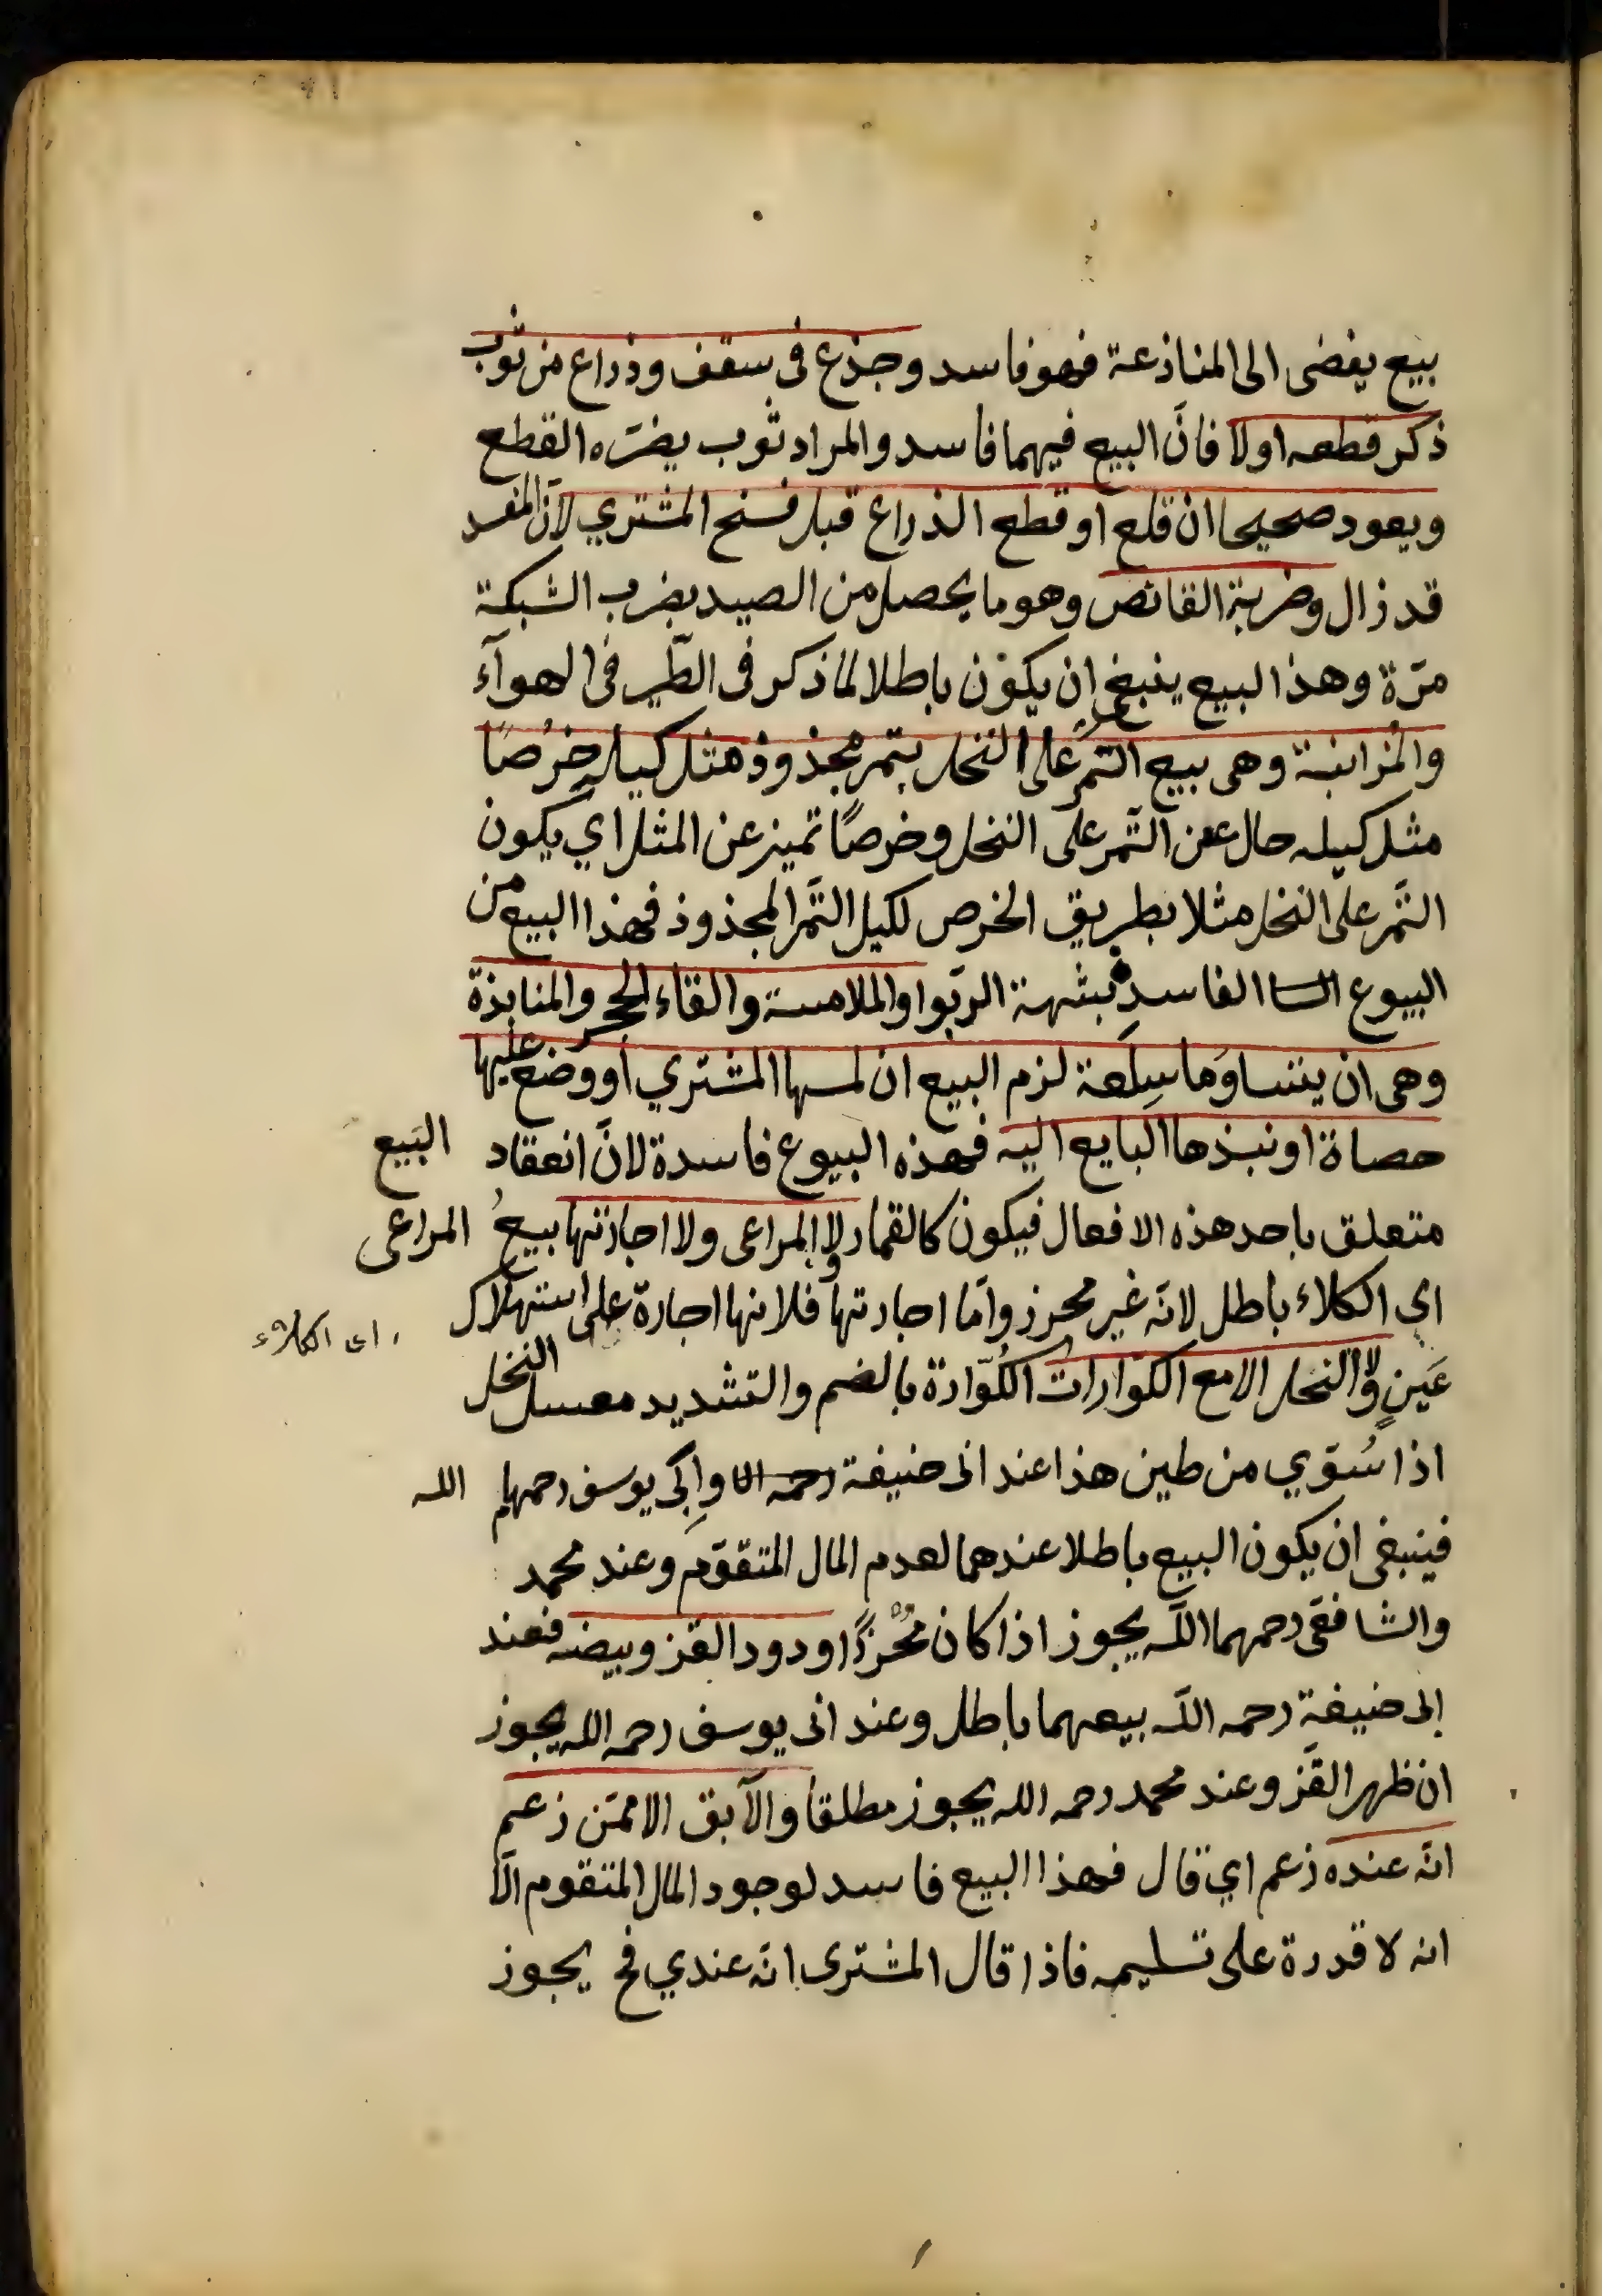 بيع يفضى الى المنازعة فهو فاسد وجذع فى سقف وذراع من ثوب
ذكر قطعه اولا فانّ البيع فيهما فاسد والمراد ثوب يضرّه القطع
ويعود صحيحا ان قلع او قطع الذراع قبل فسخ المشتري لانّ المفسد
قد زال وضربة القانص وهو ما يحصل من الصيد بضرب الشبكة
مرّة وهذا البيع ينبغى ان يكون باطلا لما ذكر فى الطّير فى الهوآء
والمُزابنة وهى بيع الثّمر على النخل بتمر مجذوذ مثل كيله خرصًا
مثل كيله حال عن الثّمر على النخل وخرصًا تميز عن المثل اي يكون
الثّمر على النخل مثلا بطريق الخرص لكيل التّمر المجذوذ فهذا البيع من
البيوع الفاسد بشبهة الربوا والملامسة والقاء الحجر والمنابذة
وهى ان يتساوما سِلعة لزم البيع ان لمسها المشتري او وضع عليها
حصاة او نبذها البايع اليه فهذه البيوع فاسدة لانّ انعقاد البَيع
متعلق باحد هذه الافعال فيكون كالقمار ولا المراعى ولا اجارتها بيعُ المراعى
اى الكلاء باطل لانّه غير محرز وامّا اجارتها فلانها اجارة على استهلاك
اى الكلاء
عَينٍ ولا النحل الا مع الكوّارات الكُوّارة بالضم والتشديد معسل النحل
اذا سُوّي من طين هذا عند ابى حنيفة وابى يوسف رحمهما الله
فينبغى ان يكون البيع باطلا عندهما لعدم المال المتقوّم وعند محمد
والشافعى رحمهما اللّه يجوز اذا كان مُحْرزًا ودود القز وبيضه فعند
ابى حنيفة رحمه اللّه بيعهما باطل وعند ابى يوسف رحمه الله يجوز
ان ظهر القَز وعند محمد رحمه الله يجوز مطلقا والآبق الا ممّن زعم
انّه عنده زعم اي قال فهذا البيع فاسد لوجود المال المتقوم الّا
انه لا قدرة على تسليمه فاذا قال المشترى انّه عندي فح يجوز